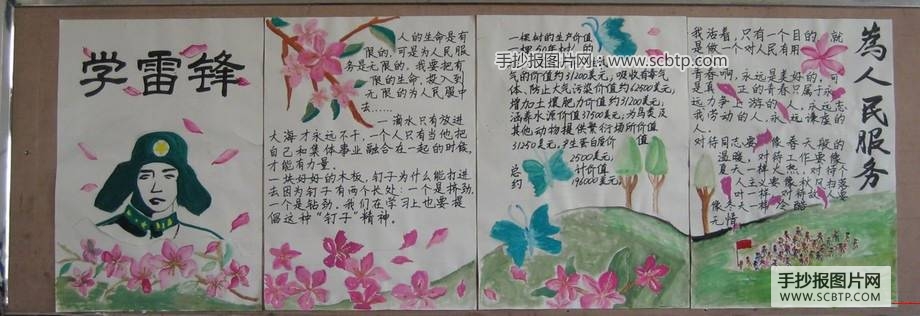 学雷锋
人的生命是有
限的,可是为人民服
务是无限的,我要把有
限的生命,投入到
无限的为人民服中
去……
一滴水只有放进
大海才永远不干,一个人只有当他把
自己和集体事业融合在一起的时候,
才能有力量。
一块好好的木板,钉子为什么能打进
去因为钉子有两个长处:一个是挤劲,
一个是钻劲。我们在学习上也要提
倡这种“钉子”精神。
一棵树的生产价值
一棵50年树
气的价值约31200美元,吸收有毒气
体、防止大气污染价值约62500美元,
增加土壤肥力价值约31200美元,
涵养水源价值37500美元;为鸟类及
其他动物提供繁衍场所价值
31250美元,产生蛋白质价值
2500美元,
总计价值
约196000美元
我活着,只有一个目的,就
是做一个对人民有用
青春啊,永远是美好的,可
是真正的青春只属于永
远力争上游的人,永远忘
我劳动的人,永远谦虚的
人。
对待同志要像春天般的
温暖,对待工作要像
夏天一样火热,对待个
人主义要像秋风扫落
叶一样,对待敌人要
像冬天一样残酷
无情
为人民服务
手抄报图片网
www.scbtp.com
手抄报图片网
www.SCBTP.com